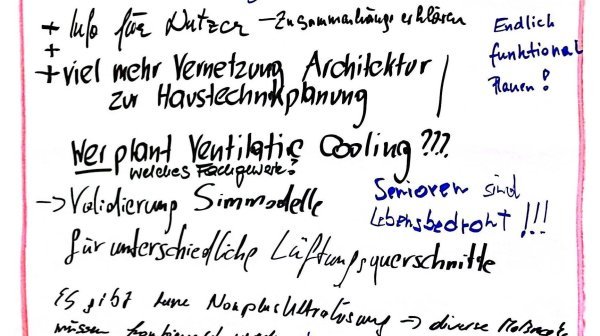 + Info für Nutzer – Zusammenhänge erklären
+
+ viel mehr Vernetzung Architektur
zur Haustechnikplanung
Endlich
funktional
Planen!
Wer plant Ventilative Cooling???
welches Fachgewerk?
-> Validierung Simmodelle
für unterschiedliche Lüftungsquerschnitte
Senioren sind
Lebensbedroht!!!
Es gibt keine Nonplusultralösung -> diverse
müssen kombiniert